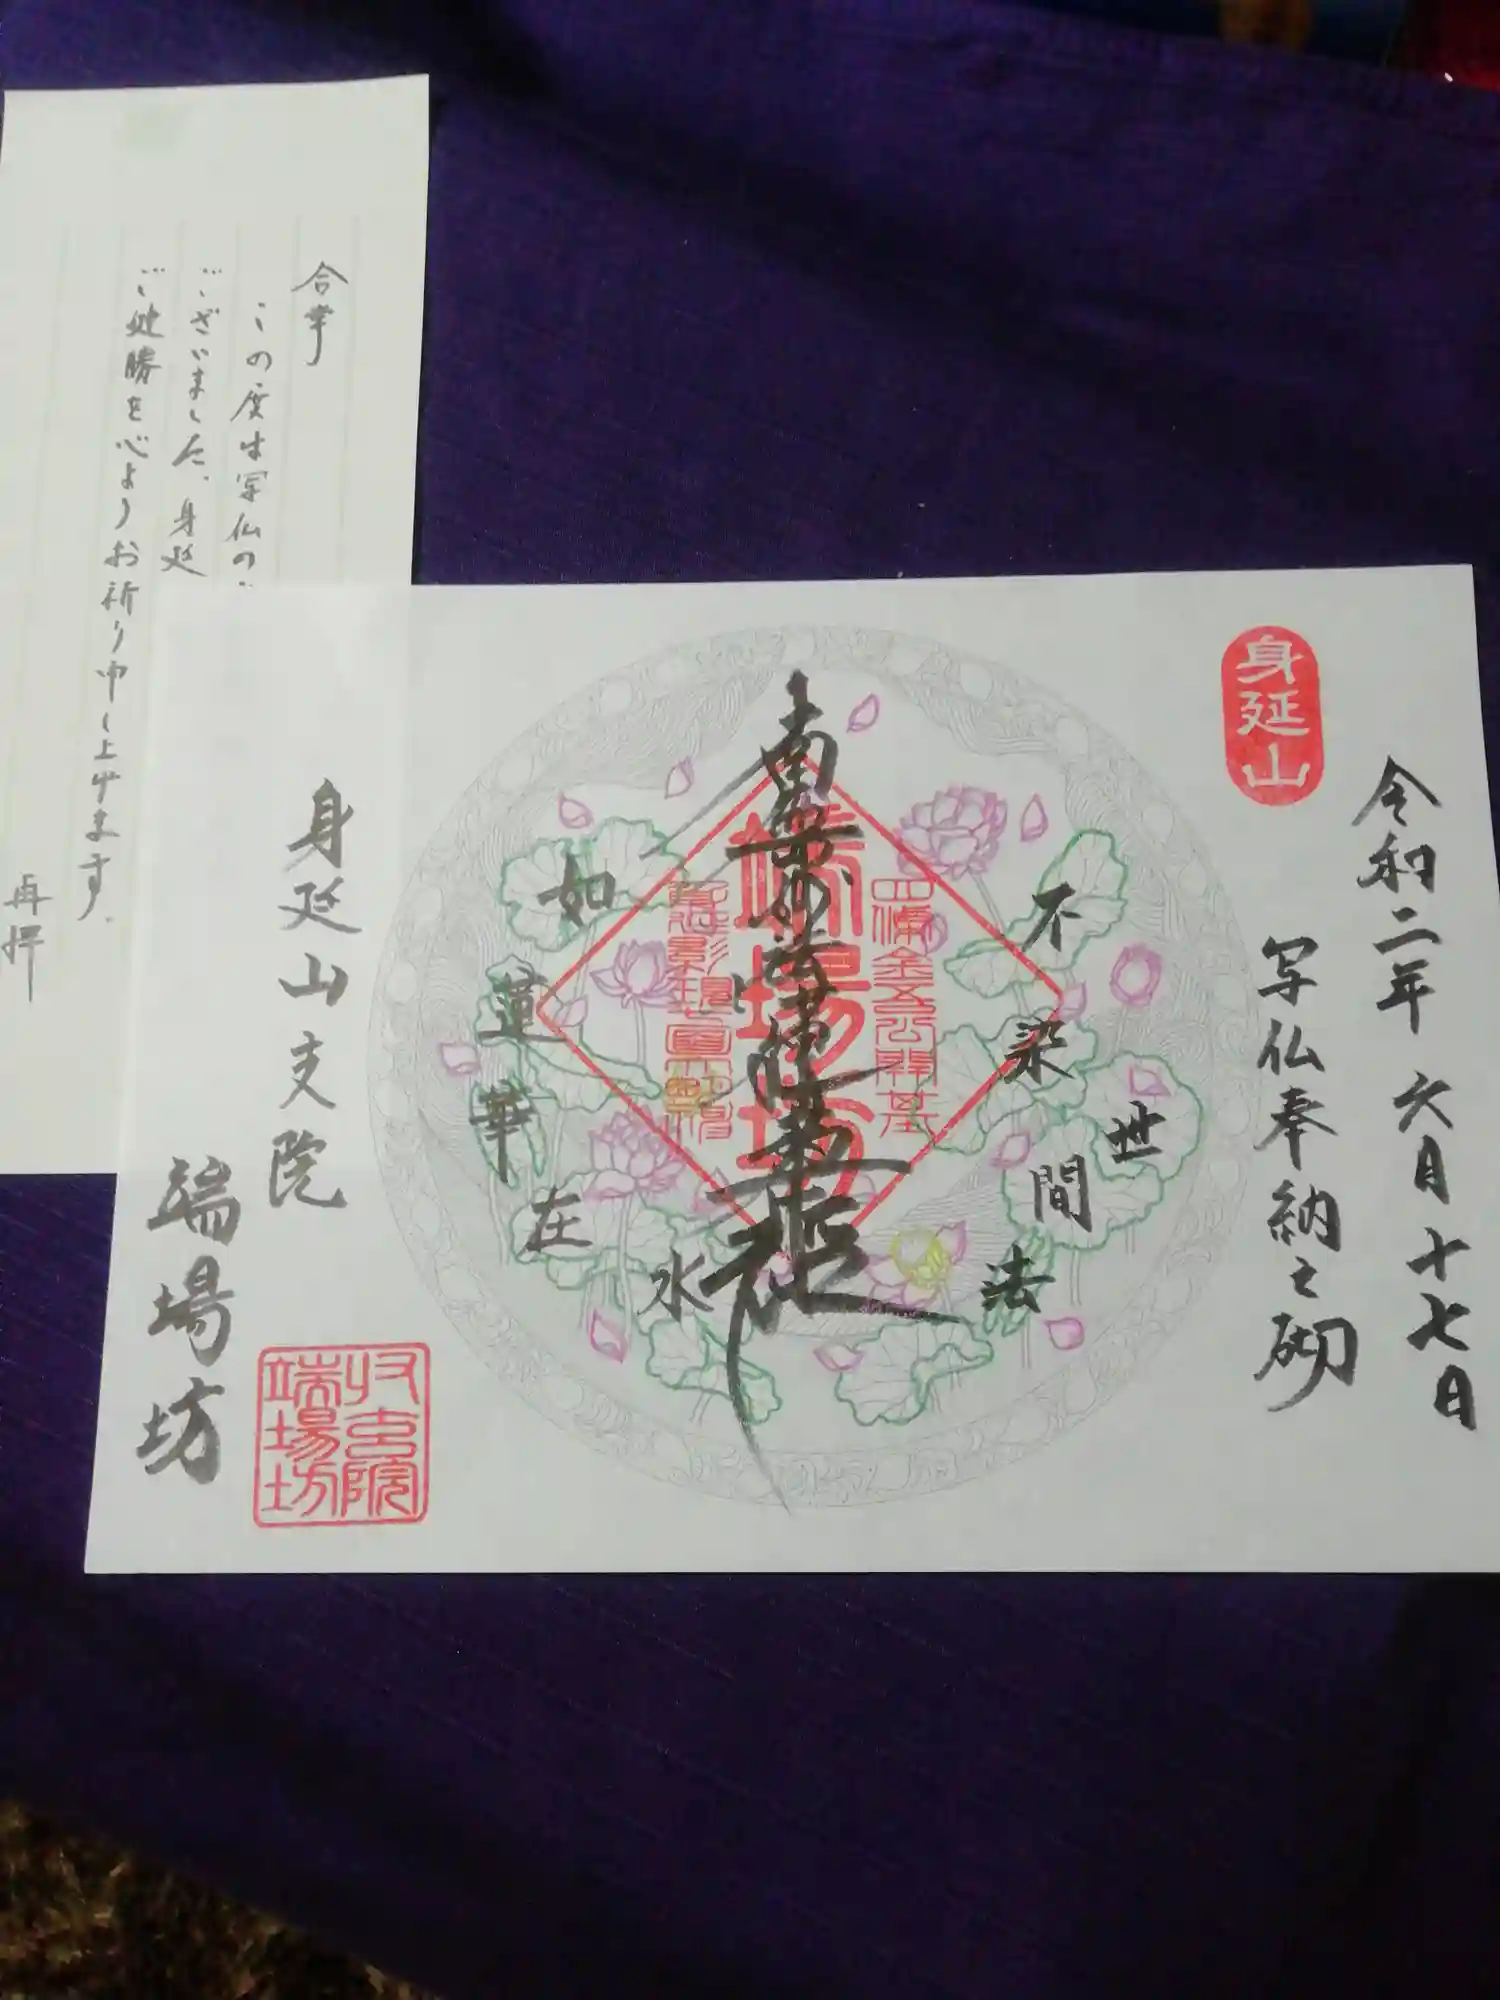 合掌
この度は写仏の
ございました。身延
ご健勝を心よりお祈り申し上げます。
再拝
身延山
令和二年 六月十七日
写仏奉納之砌
不染世間法
南無妙法蓮華経
端場坊
四條金吾公開基
如蓮華在水
身延山支院
端場坊
端場坊